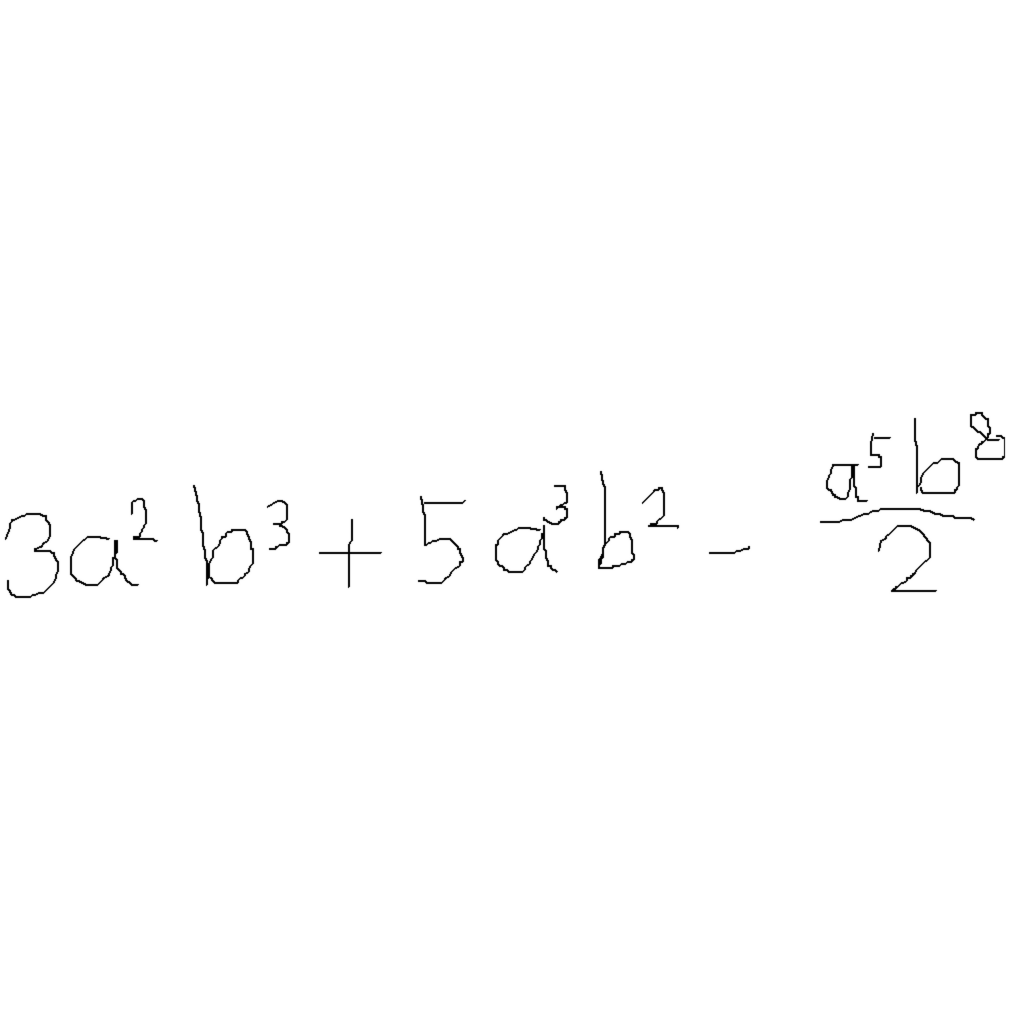 3a² b³ + 5a³b² - a⁵b⁸/2